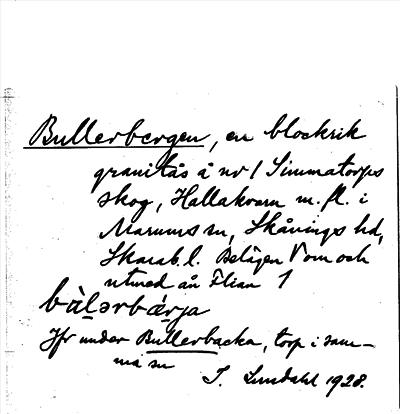 Bullerbergen, en blockrik
granitås å nr 1 Simmatorps
skog, Hallakvarn m. fl. i
Marums sn, Skånings hd,
Skarab. l. Belägen V om och
utmed ån Flian 1
bàlərbǽrja
Jfr under Bullerbacka, torp i sam-
ma sn
S. Lundahl 1928.